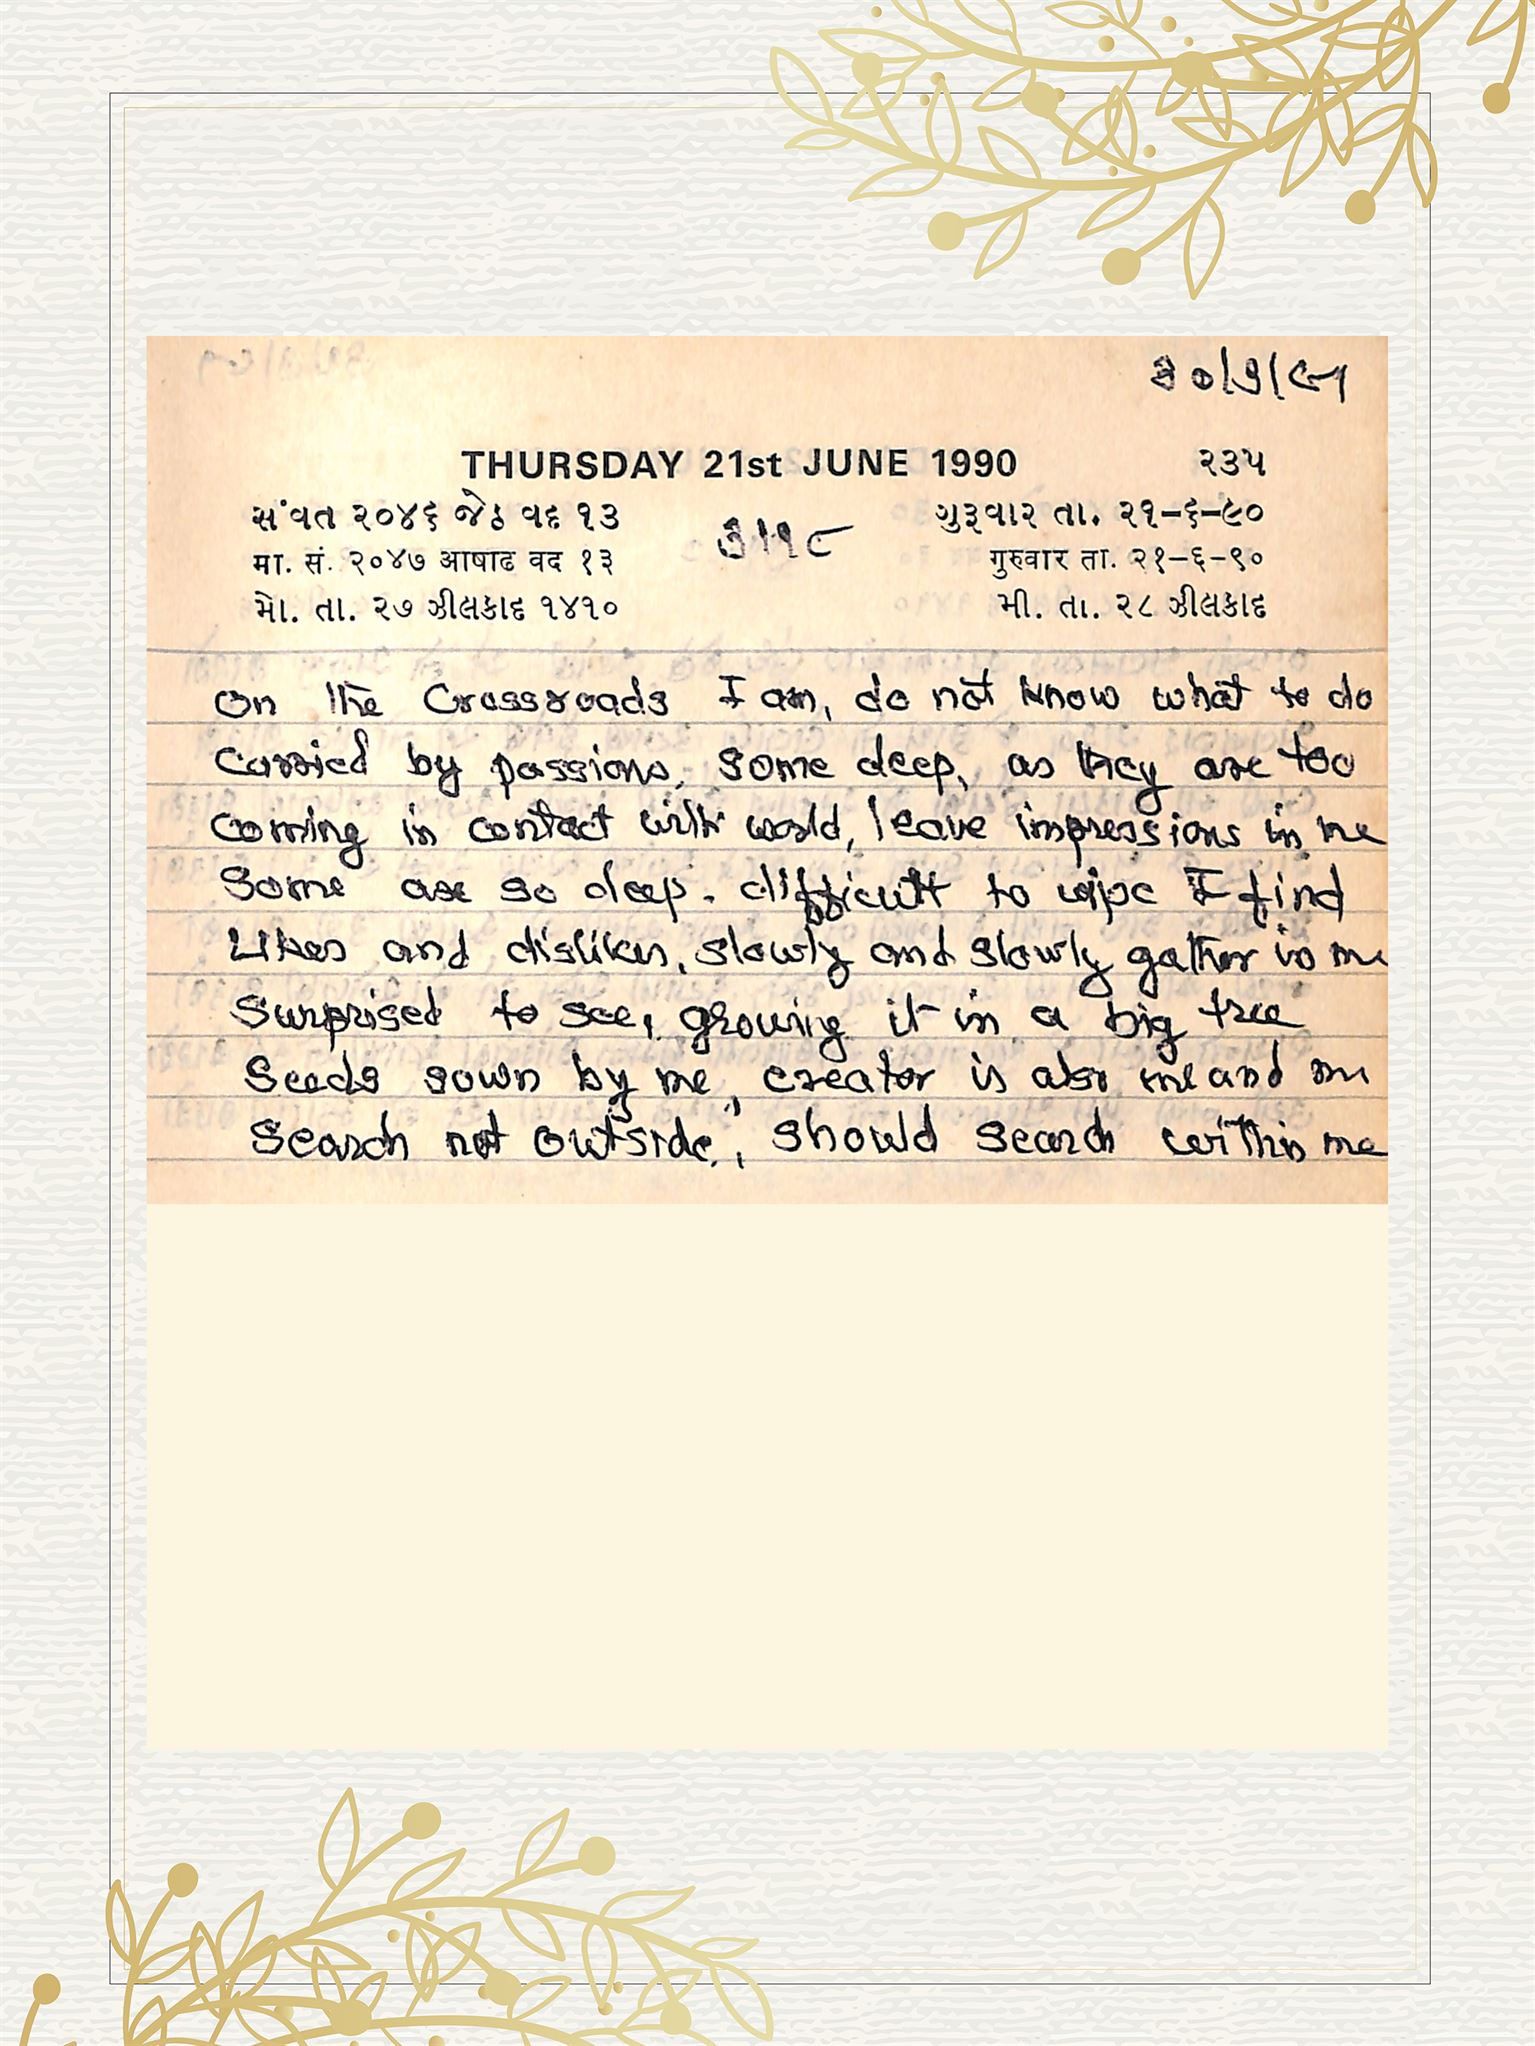 ૩૦/૭/૯૧
THURSDAY 21st JUNE 1990 ૨૩૫
સંવત ૨૦૪૬ જેઠ વદ ૧૩ ગુરૂવાર તા. ૨૧-૬-૯૦
मा. सं. २०४७ आषाढ वद १३ गुरुवार ता. २१-६-९०
મેા. તા. ૨૭ ઝીલકાદ ૧૪૧૦ મી. તા. ૨૮ ઝીલકાદ
On the Crossroads I am, do not know what to do
Carried by passions, some deep, as they are too
Coming in contact with world, leave impressions in me
Some are so deep. difficult to wipe I find
Likes and dislikes, slowly and slowly gather in me
Surprised to see, growing it in a big tree
Seeds sown by me, creator is also me and me
Search not outside, should search within me